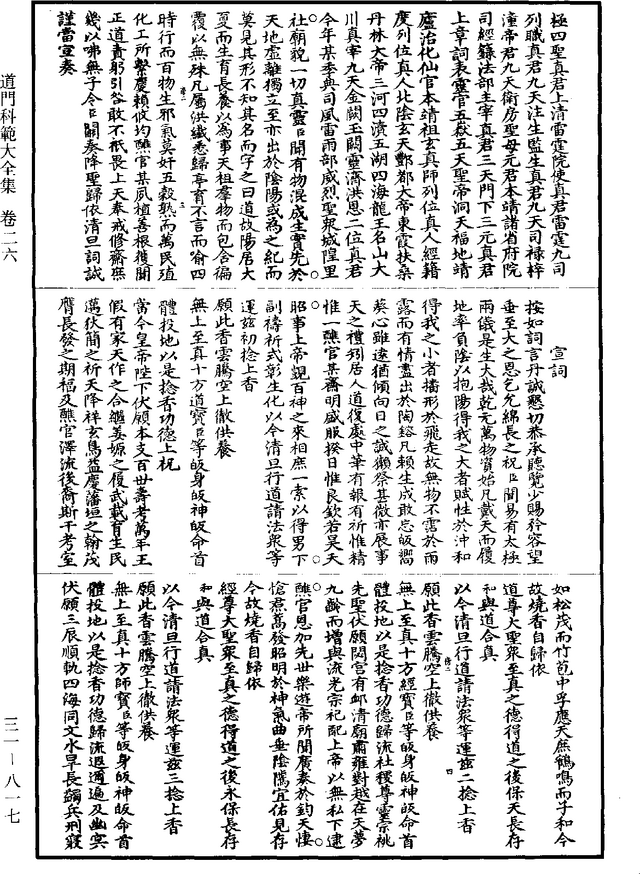 道門科範大全集 卷二六
三一—八一七
極四聖真君上清雷霆院使真君雷霆九司
列職真君九天注生監生真君九天司祿梓
潼帝君九天衛房聖母元君本靖諸省府院
司經籙法部主宰真君三天門下三元真君
上章詞表靈官五嶽五天聖帝洞天福地靖
廬治化仙官本靖祖玄真師列位真人經籍
度列位真人北陰玄天酆都大帝東霞扶桑
丹林大帝三河四瀆五湖四海龍王名山大
川真宰九天金闕玉闕靈濟洪恩二位真君
今年某季典司風雷雨部威烈聖眾城隍里
社廟貌一切真靈臣聞有物混成生實先於
天地虛離獨立至亦出於陰陽或為之紀而
莫見其形不知其名而字之曰道故陽居大
夏而生育長養以為事天祖羣物而包含徧
覆以無殊凡屬洪纖悉歸亭育不言而喻四
時行而百物生邪氣莫奸五穀熟而萬民殖
化工所繫慶賴攸均醮官某夙植善根獲聞
正道責躬引咎敢不祇畏上天奉戒修齋庶
幾以咈無子令臣關奏降聖歸依清旦詞誠
謹當宣奏
宣詞
按如詞言丹誠懇切恭承聽覽少賜矜容望
垂至大之恩乞允綿長之祝臣聞易有太極
兩儀是生大哉乾元萬物資始凡戴天而履
地率負陰以抱陽得我之大者賦性於沖和
得我之小者播形於飛走故無物不霑於雨
露而有情盡出於陶鎔凡賴生成敢忘皈嚮
葵心雖遠猶傾向日之誠獺祭甚微亦展事
天之禮矧居人道復處中華有報有祈惟精
惟一醮官某齋明盛服揆日惟良欽若昊天
昭事上帝覬百神之來相庶一索以得男下
副禱祈式彰生化以今清旦行道請法眾等
運茲初捻上香
願此香雲騰空上徹供養
無上至真十方道寶臣等皈身皈神皈命首
體投地以是捻香功德上祝
當今皇帝陛下伏願本支百世壽考萬年王
假有家天作之合繼姜嫄之履武載育生民
邁伏簡之祈天降祥玄鳥益慶藩垣之翰茂
膺長發之期福及醮官澤流後裔斯干考室
如松茂而竹苞中孚應天庶鶴鳴而子和今
故燒香自歸依
道尊大聖眾至真之德得道之後保天長存
和與道合真
以今清旦行道請法眾等運茲二捻上香
願此香雲騰空上徹供養
無上至真十方經寶臣等皈身皈神皈命首
體投地以是捻香功德歸流社稷尊靈宗祧
先聖伏願閟宮有侐清廟肅雍對越在天夢
九齡而增與流光宗祀配上帝以無私下逮
醮官恩加先世樂遊帝所聞廣奏於鈞天悽
愴焄蒿發昭明於神氣曲垂陰隲宜佑見存
今故燒香自歸依
經尊大聖眾至真之德得道之後永保長存
和與道合真
以今清旦行道請法眾等運茲三捻上香
願此香雲騰空上徹供養
無上至真十方師寶臣等皈身皈神皈命首
體投地以是捻香功德歸流遐邇遍及幽冥
伏願三辰順軌四海同文水旱長蠲兵刑寢